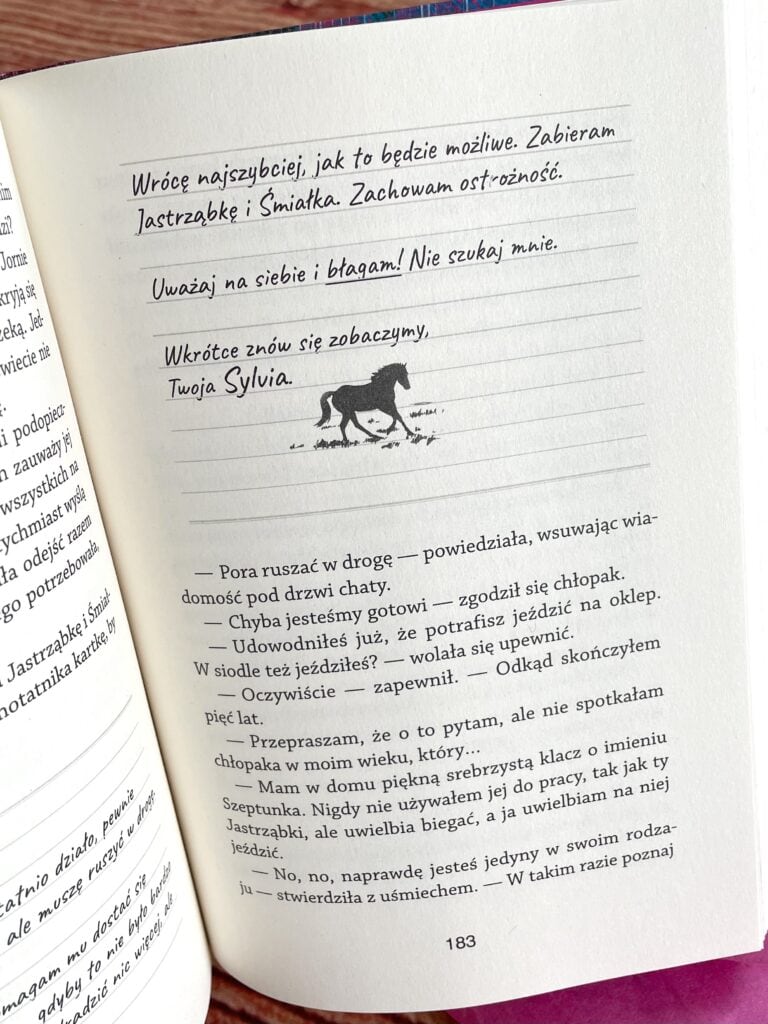 Jornie
kryją się
Jed-
wiecie nie
i podopiecz-
zauważy jej
wszystkich na
tychmiast wyślą
odejść razem
go potrzebowała,
Jastrząbkę i Śmiał-
notatnika kartkę, by
tatnio działo, pewnie
ale muszę ruszyć w drogę.
magam mu dostać się
gdyby to nie było bardzo
radzić nic więcej, ale
Wrócę najszybciej, jak to będzie możliwe. Zabieram
Jastrząbkę i Śmiałka. Zachowam ostrożność.
Uważaj na siebie i błagam! Nie szukaj mnie.
Wkrótce znów się zobaczymy,
Twoja Sylvia.
— Pora ruszać w drogę — powiedziała, wsuwając wia-
domość pod drzwi chaty.
— Chyba jesteśmy gotowi — zgodził się chłopak.
— Udowodniłeś już, że potrafisz jeździć na oklep.
W siodle też jeździłeś? — wolała się upewnić.
— Oczywiście — zapewnił. — Odkąd skończyłem
pięć lat.
— Przepraszam, że o to pytam, ale nie spotkałam
chłopaka w moim wieku, który...
— Mam w domu piękną srebrzystą klacz o imieniu
Szeptunka. Nigdy nie używałem jej do pracy, tak jak ty
Jastrząbki, ale uwielbia biegać, a ja uwielbiam na niej
jeździć.
— No, no, naprawdę jesteś jedyny w swoim rodza-
ju — stwierdziła z uśmiechem. — W takim razie poznaj
183